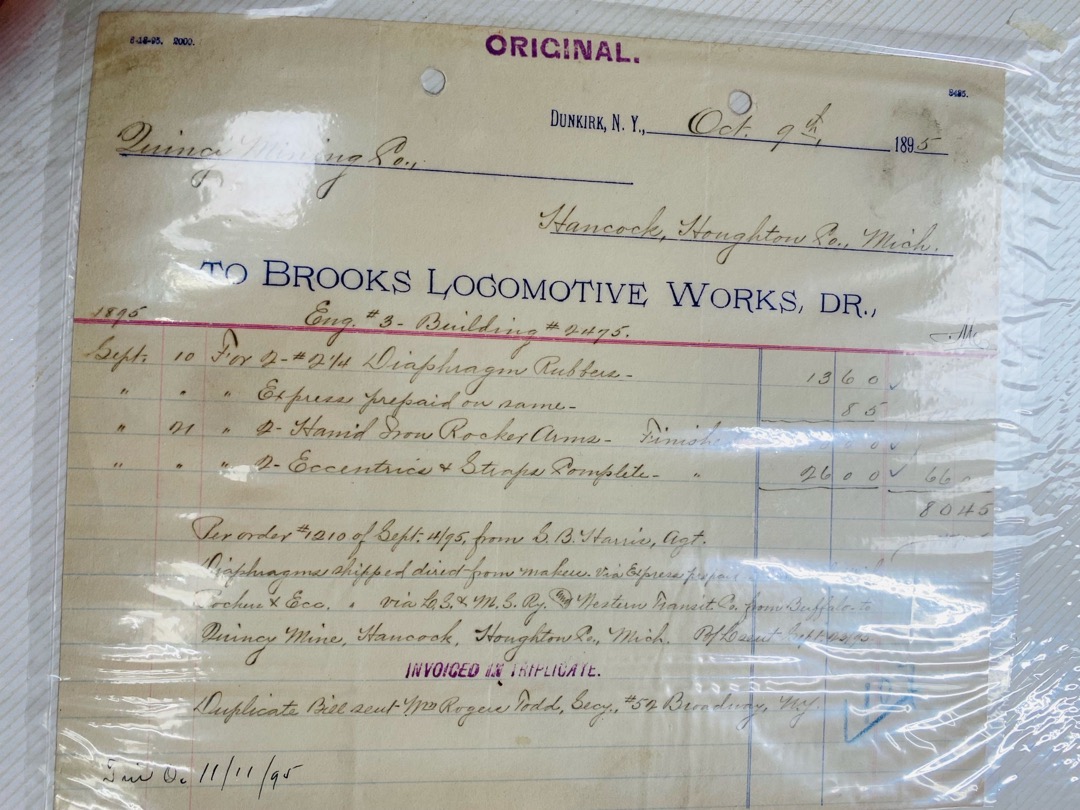 8-18-95. 2000.
ORIGINAL.
8495.
DUNKIRK, N. Y., Oct. 9th, 1895
Quincy Mining Co.,
Hancock, Houghton Co., Mich.
TO BROOKS LOCOMOTIVE WORKS, DR.,
1895 Eng. #3 - Building #2475.
Sept. 10 For 2 - #2 1/4 Diaphragm Rubbers - 13 60 ✓
" " " Express prepaid on same - 85
" 21 " 2 - Iron Rocker Arms - 00 ✓
" " " 2 - Eccentrics & Straps Complete - " 26 00 ✓ 66
80 45
Per order #1210 of Sept. 4/95, from S. B. Harris, Agt.
Diaphragms shipped direct from makers. Via Express
Rockers & Ecc. " via L.S. & M.S. Ry. Western Transit Co. from Buffalo to
Quincy Mine, Hancock, Houghton Co., Mich. B/L sent
INVOICED IN TRIPLICATE.
Duplicate Bill sent Wm Rogers Todd, Secy., #52 Broadway, NY.
11/11/95